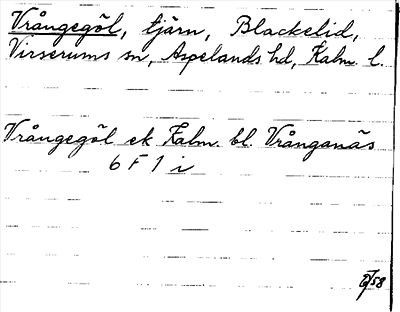 Vrångegöl, tjärn, Blackelid,
Virserums sn, Aspelands hd, Kalm. l.
Vrångegöl ek Kalm. bl. Vrånganäs
6 F 1 i